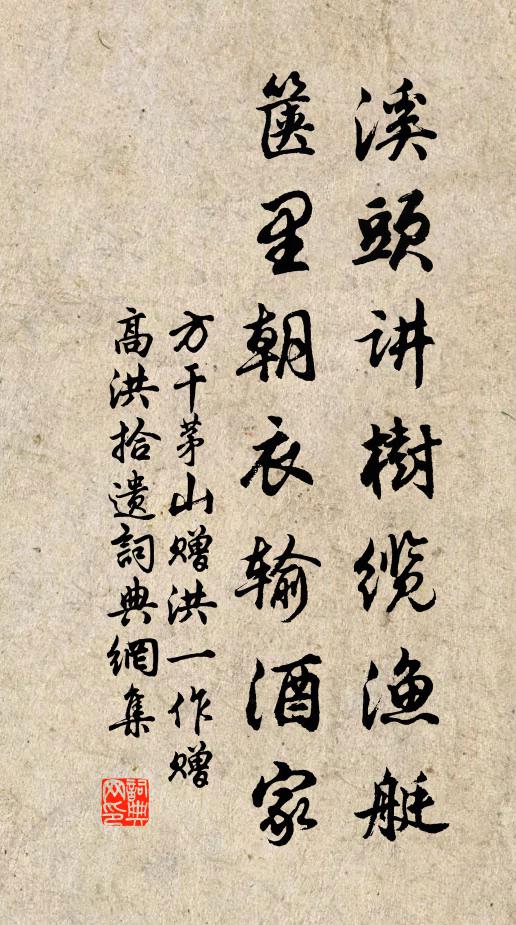 溪頭讲樹缆漁艇
箧里朝衣输酒家
方干茅山赠洪一作赠
高洪拾遗詞典網集
詞典网印